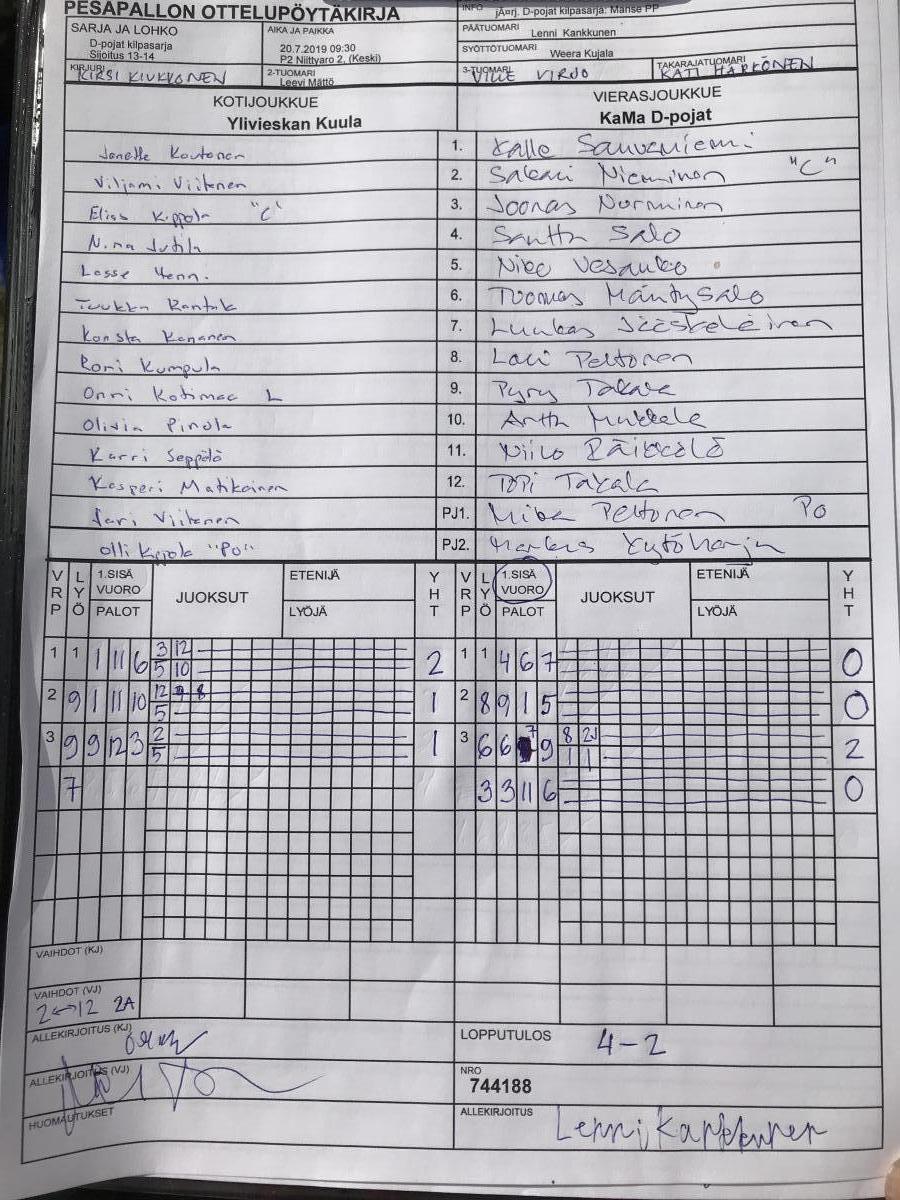 PESÄPALLON OTTELUPÖYTÄKIRJA
INFO jÃ¤rj. D-pojat kilpasarja: Manse PP
SARJA JA LOHKO
D-pojat kilpasarja
Sijoitus 13-14
AIKA JA PAIKKA
20.7.2019 09:30
P2 Niittyaro 2, (Keski)
PÄÄTUOMARI
Lenni Kankkunen
SYÖTTÖTUOMARI
Weera Kujala
KIRJURI
KIRSI KIUKKONEN
2-TUOMARI
Leevi Mättö
3-TUOMARI
VILLE VIRJO
TAKARAJATUOMARI
KATI HARKÖNEN
KOTIJOUKKUE
Ylivieskan Kuula
VIERASJOUKKUE
KaMa D-pojat
Janette Koutonen 1. Kalle Sauvaniemi
Viljami Viitanen 2. Sakari Nieminen "C"
Elias Kippola "C" 3. Joonas Nurminen
Niina Jutila 4. Santtu Salo
Lasse Henn. 5. Niko Vesanko
Tuukka Rantak 6. Tuomas Mäntysalo
Konsta Kananen 7. Luukas Jääskeläinen
Romi Kumpula 8. Lauri Peltonen
Onni Kotimaa L 9. Pyry Takala
Olivia Pirola 10. Arttu Mukkala
Karri Seppälä 11. Niilo Räikkälä
Kasperi Matikainen 12. Topi Takala
Jari Viitanen PJ1. Mika Peltonen Po
Olli Kippola "Po" PJ2. Markus Kytöharju
VRP LYÖ 1.SISÄ VUORO PALOT JUOKSUT ETENIJÄ LYÖJÄ YHT VRP LYÖ 1.SISÄ VUORO PALOT JUOKSUT ETENIJÄ LYÖJÄ YHT
1 1 1 11 6 3 12 2 1 1 4 6 7 0
5 10
2 9 1 11 10 12 9 8 1 2 8 9 1 5 0
5
3 9 9 12 3 2 1 3 6 6 7 9 8 2J 2
5 1 1
7 3 3 11 6 0
VAIHDOT (KJ)
VAIHDOT (VJ)
2↔12 2A
ALLEKIRJOITUS (KJ)
LOPPUTULOS 4-2
ALLEKIRJOITUS (VJ)
NRO
744188
HUOMAUTUKSET
ALLEKIRJOITUS Lenni Kankkunen